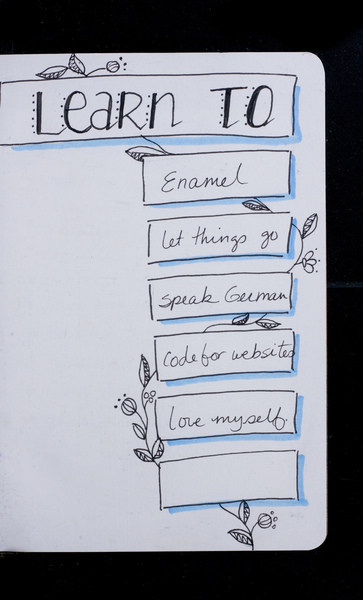 LeaRn TO
Enamel
let things go
speak German
Code for websites
love myself.